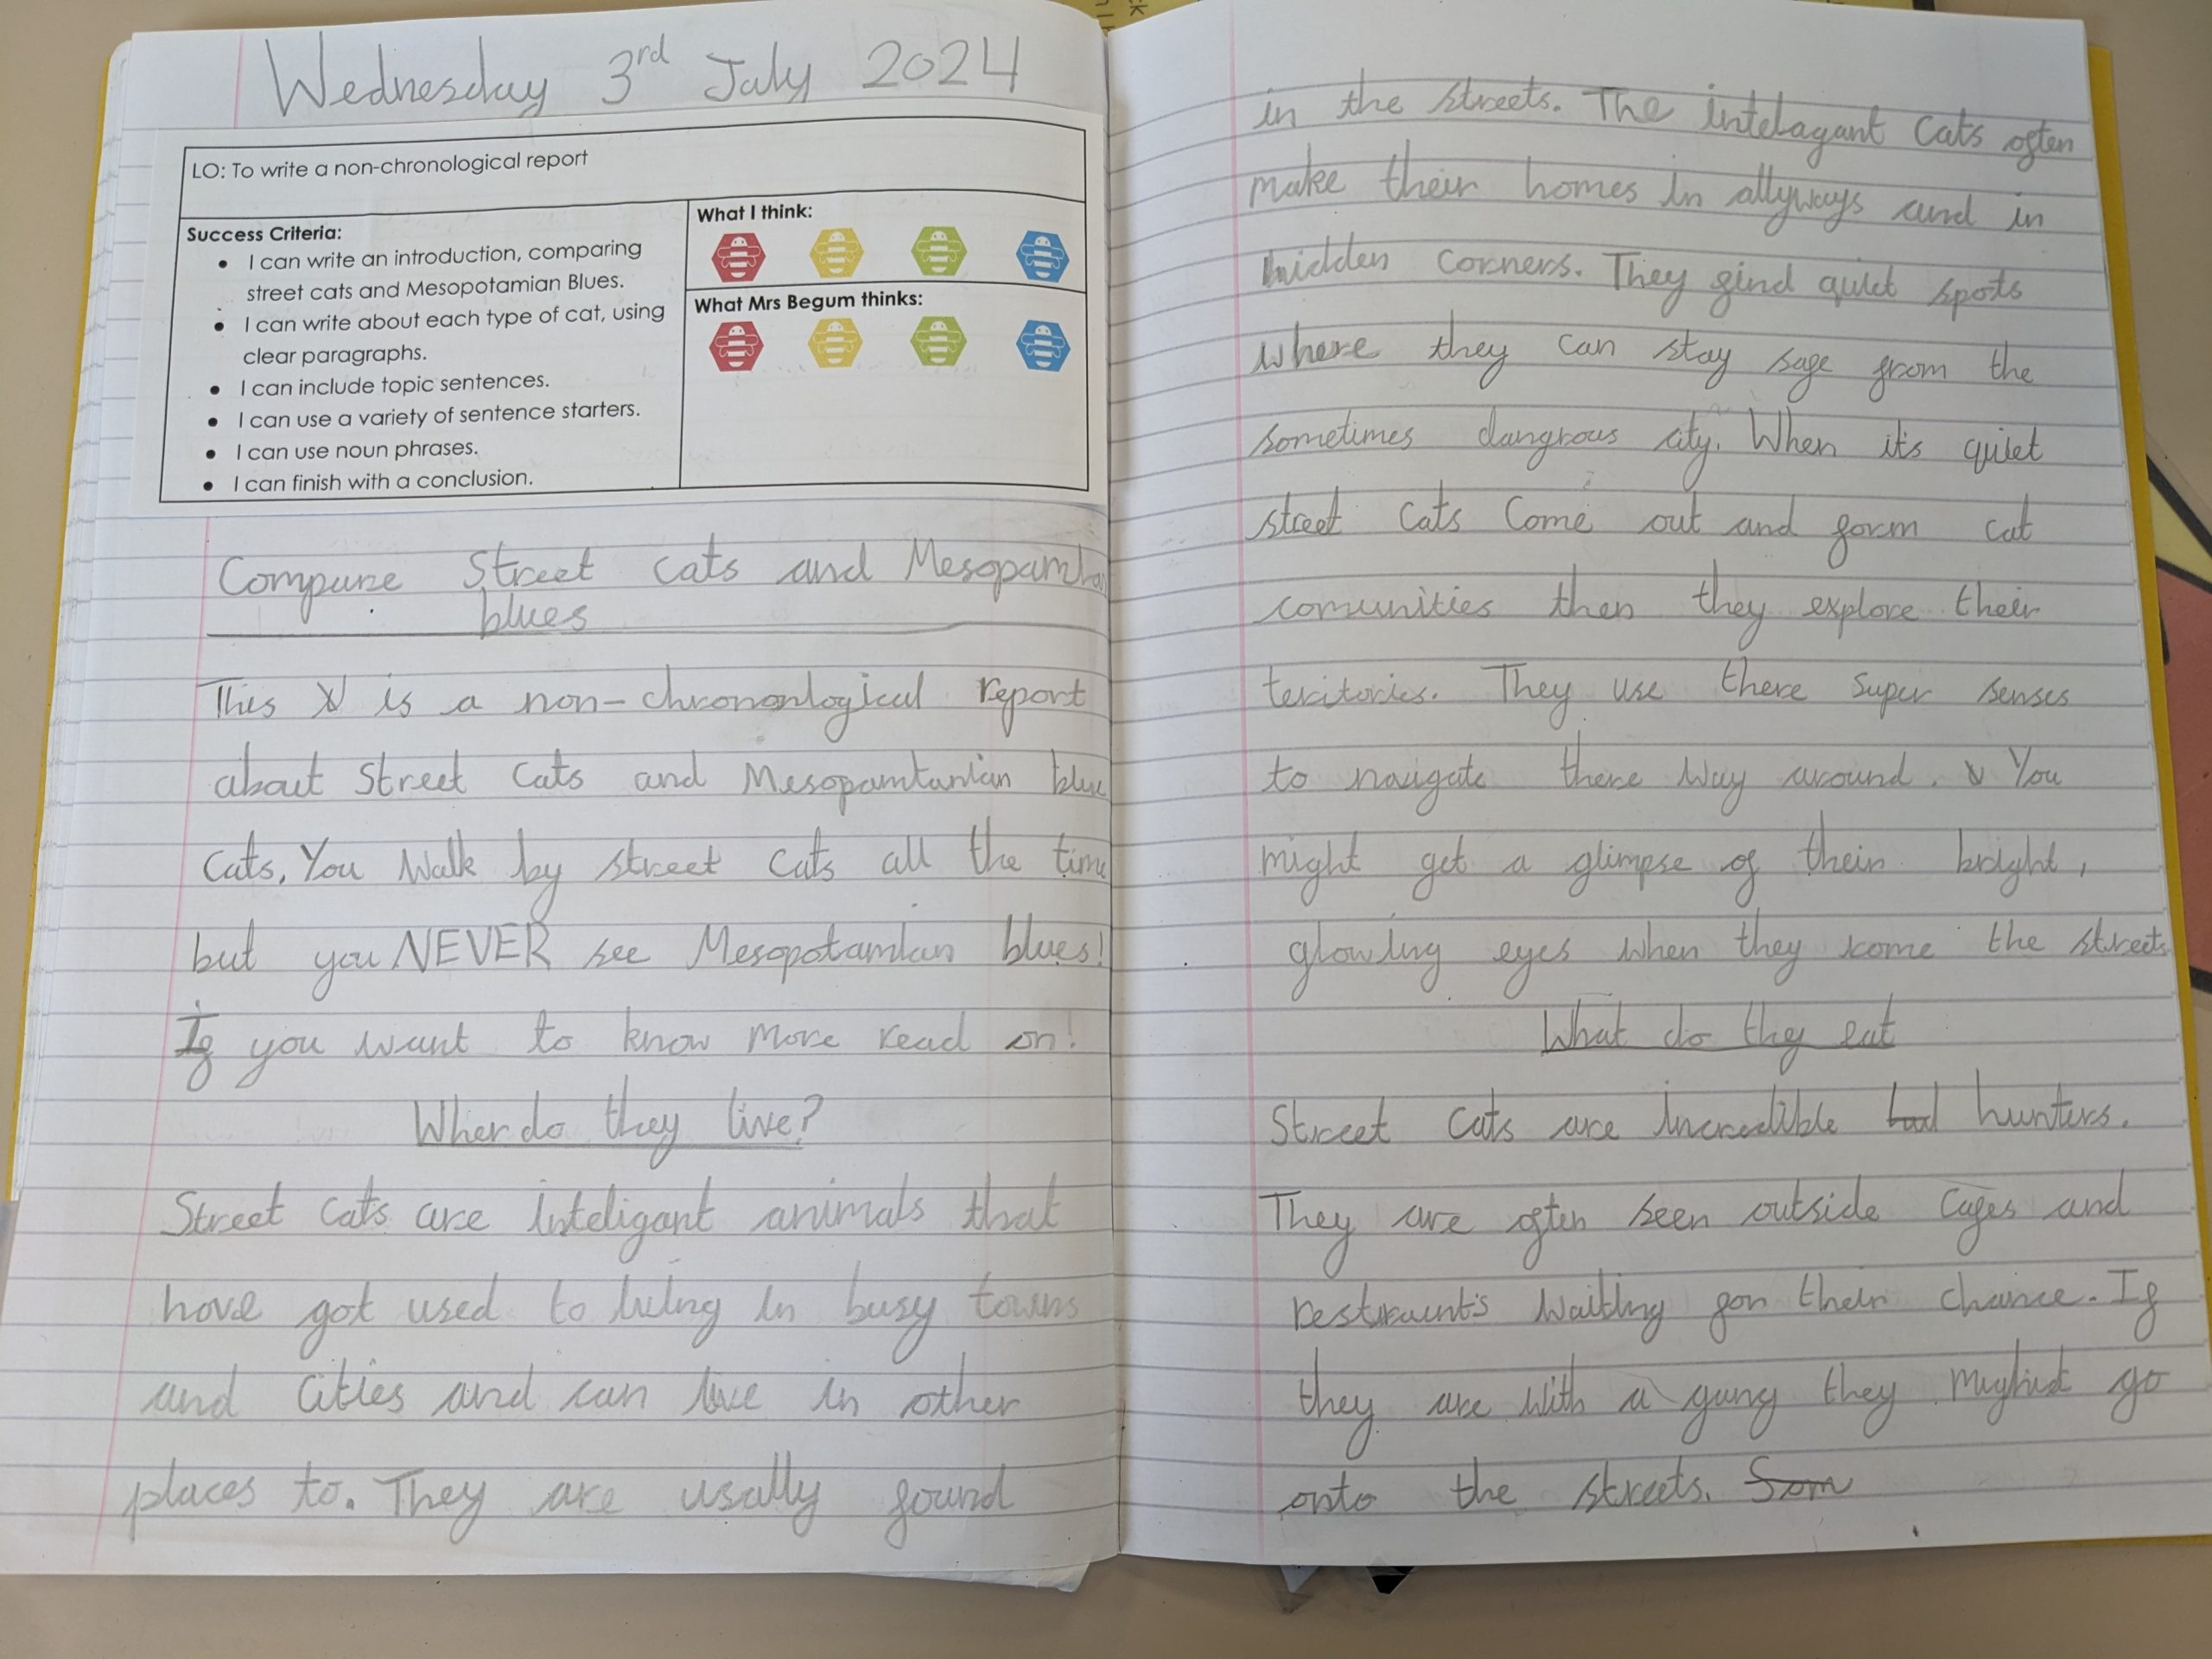 Wednesday 3rd July 2024
LO: To write a non-chronological report
Success Criteria:
• I can write an introduction, comparing
street cats and Mesopotamian Blues.
• I can write about each type of cat, using
clear paragraphs.
• I can include topic sentences.
• I can use a variety of sentence starters.
• I can use noun phrases.
• I can finish with a conclusion.
What I think:
What Mrs Begum thinks:
Compare Street cats and
blues
This is a non-chrononlogical report
about Street Cats and Mesopamtanian blue
Cats. You Walk by street cats all the time
but you NEVER see Mesopotamian blues!
If you want to know more read on!
Wher do they live?
Street cats are inteligant animals that
have got used to living in busy towns
and cities and can live in other
places to. They are usally found
in the streets. The intelagant cats often
make their homes in allyways and in
hidden corners. They find quiet spots
where they can stay safe from the
sometimes dangrous city. When it's quiet
street cats come out and form cat
comunities then they explore their
teritories. They use there super senses
to navigate there way around. You
might get a glimpse of their bright,
glowing eyes when they rome the streets
What do they eat
Street cats are incredible hunters.
They are often seen outside cafes and
restraunts waiting for their chance. If
they are with a gang they might go
onto the streets. Som